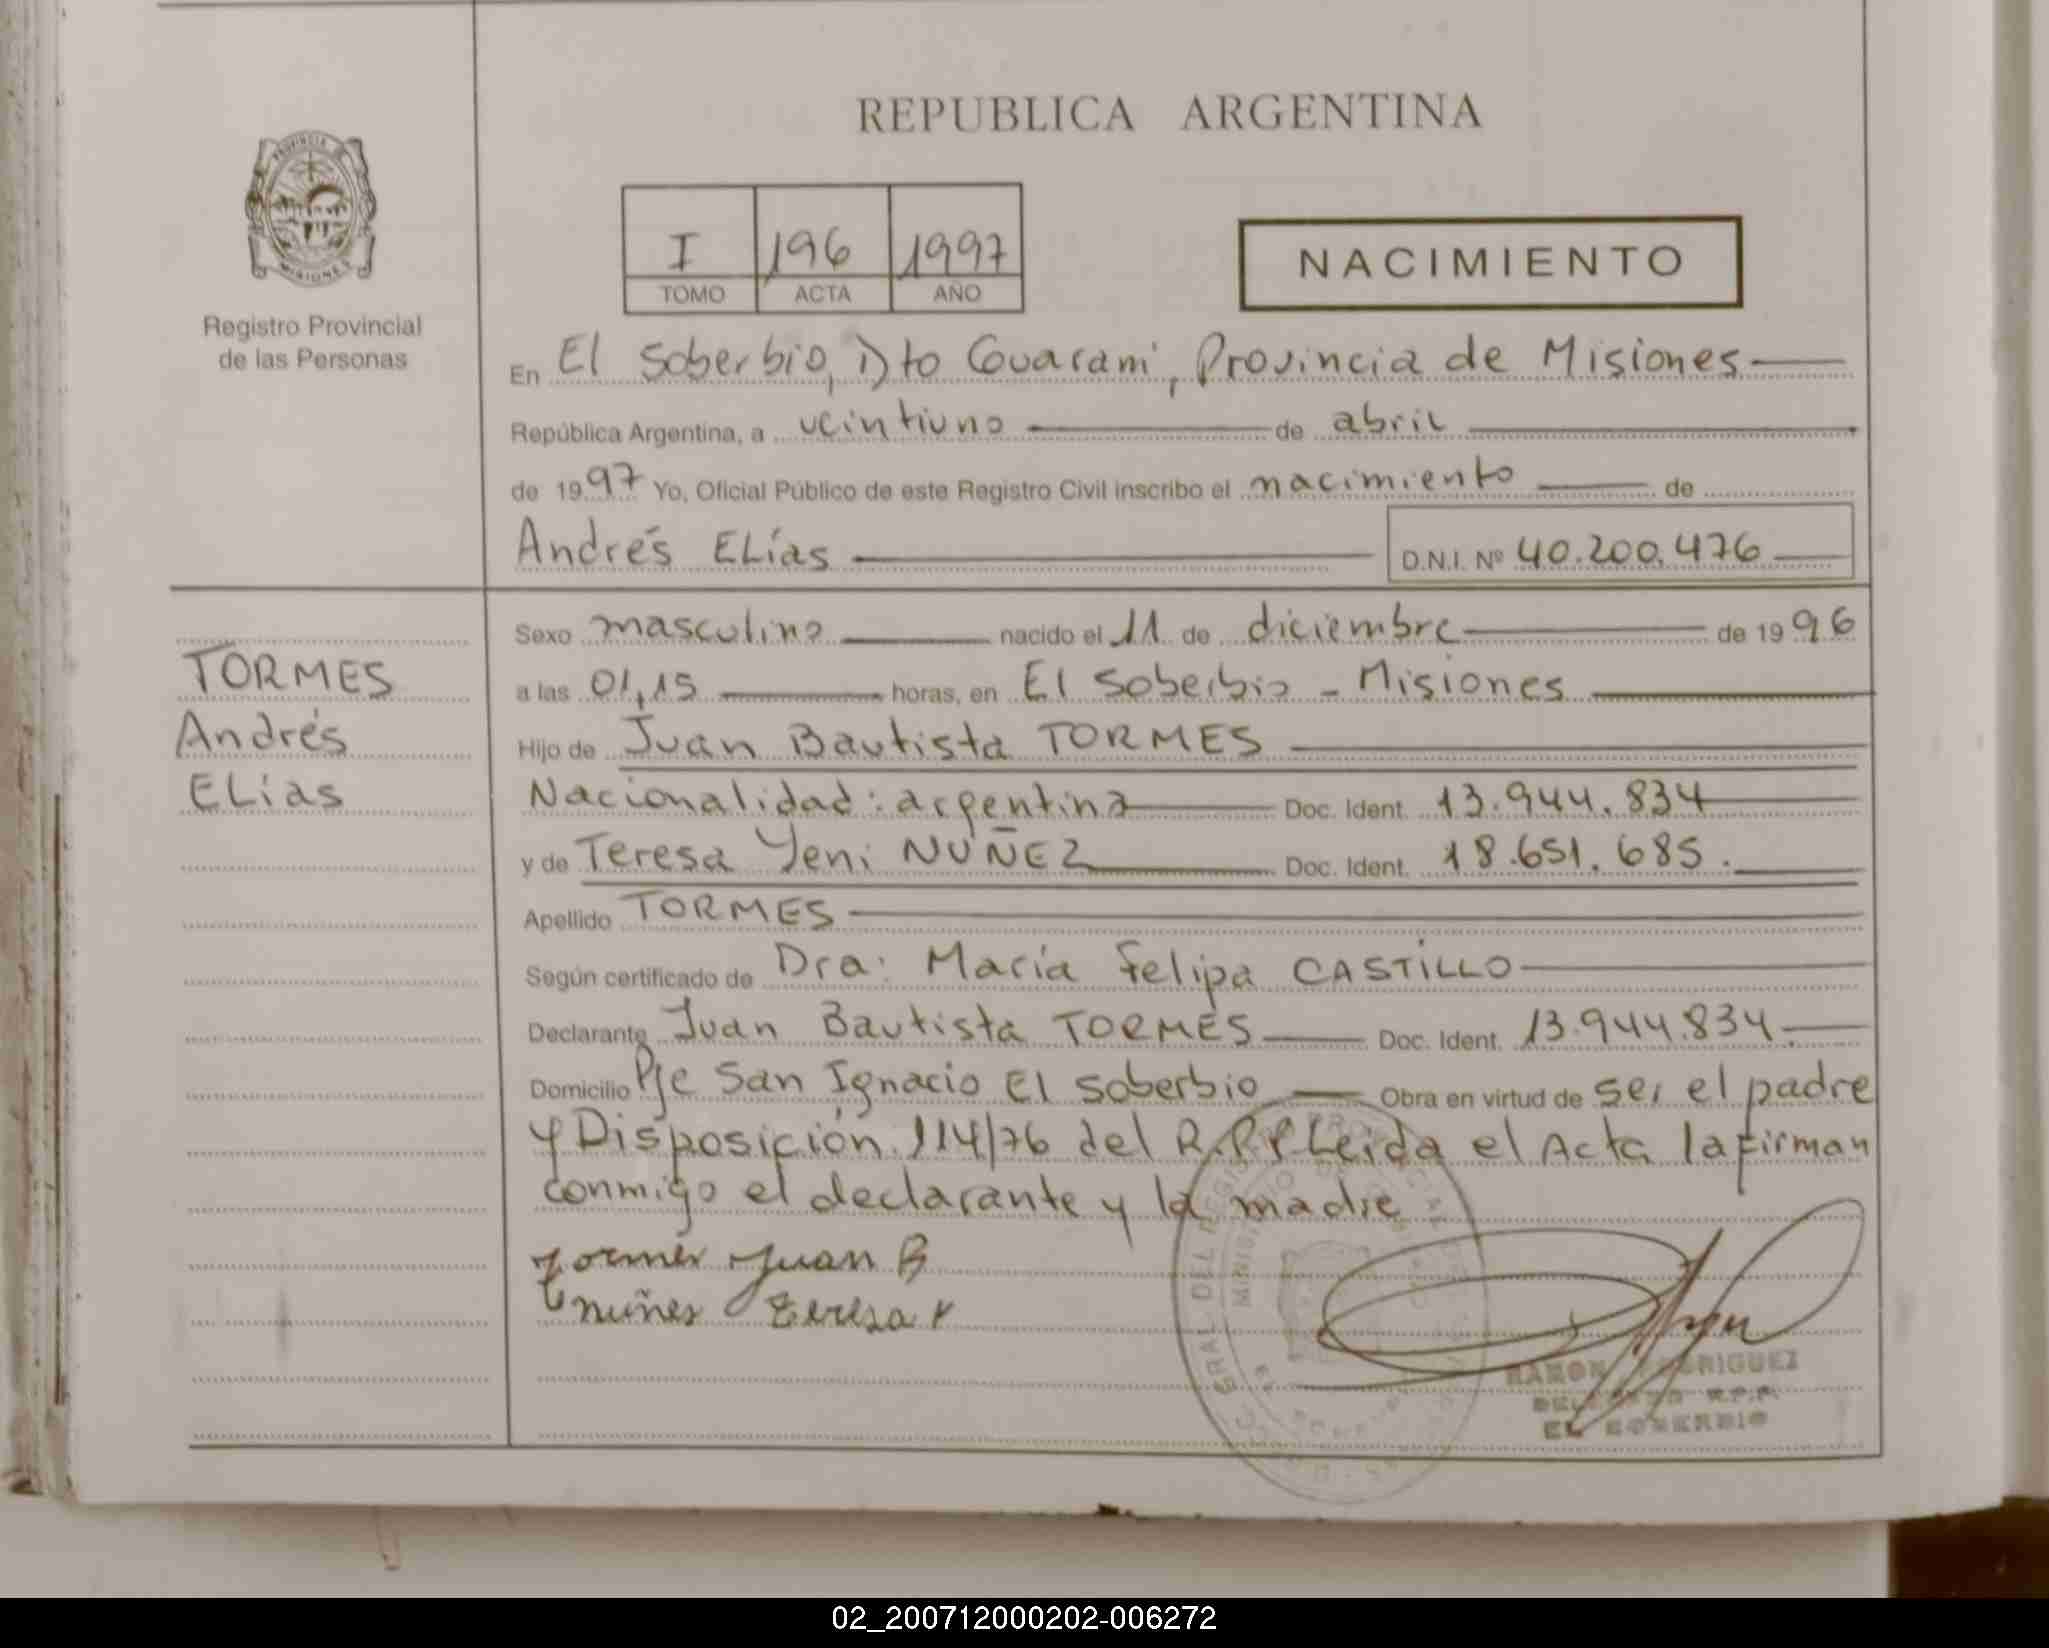 REPUBLICA ARGENTINA
PROVINCIA DE
MISIONES
Registro Provincial
de las Personas
I 196 1997
TOMO ACTA AÑO
NACIMIENTO
En El Soberbio, Dto Guaraní, Provincia de Misiones
República Argentina, a veintiuno de abril
de 1997 Yo, Oficial Público de este Registro Civil inscribo el nacimiento de
Andrés ELías D.N.I. Nº 40.200.476
TORMES
Andrés
ELías
Sexo masculino nacido el 11 de diciembre de 1996
a las 01,15 horas, en El Soberbio - Misiones
Hijo de Juan Bautista TORMES
Nacionalidad: argentina Doc. Ident. 13.944.834
y de Teresa Yeni NUÑEZ Doc. Ident. 18.651.685.
Apellido TORMES
Según certificado de Dra: María Felipa CASTILLO
Declarante Juan Bautista TORMES Doc. Ident. 13.944.834.
Domicilio Pje San Ignacio El Soberbio Obra en virtud de ser el padre
y Disposición 114/76 del R.P.P Leida el Acta la firman
conmigo el declarante y la madre
Tormes Juan B
nuñes Teresa Y
RAMON RODRIGUEZ
DELEGADO R.P.P.
EL SOBERBIO
02_200712000202-006272